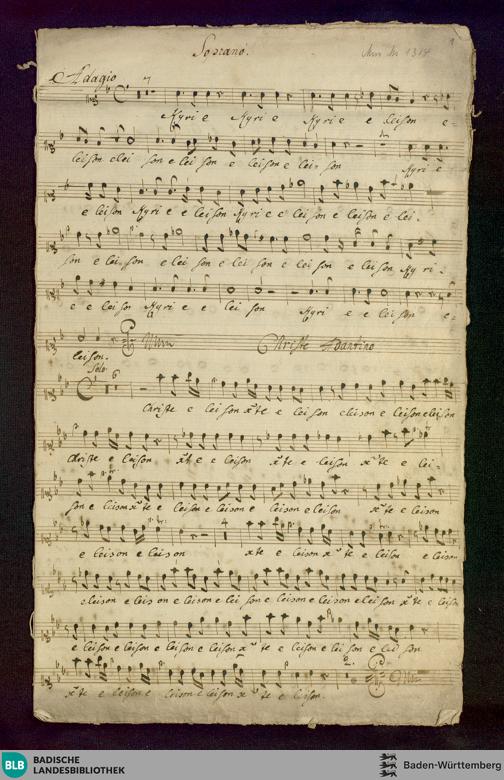 Soprano.
Mus. Hs. 1314
1
Adagio
7
Kyri e Kyri e Kyri e e leison e-
leison elei son e lei son e leison e lei- son Kyri e
e leison Kyri e e leison Kyri e e lei son e leison e lei-
son e lei- son e lei son e lei son e lei son e leison Kyri-
e e leison Kyri e e lei son Kyri e e lei son e-
leison.
Christe Andantino
Solo
6
Christe e leison xte e leison eleison e leison eleison
Christe e leison xte e leison xte e leison xte e lei-
son e leison xte e leison e leison e leison e leison xte e leison
4
e leison e leison xte e leison xte e leison e leison
eleison e leison e leison e lei son e leison e leison e leison xte e leison
e leison e leison e leison e leison xte e leison e lei son e lei son
xte e leison e leison e leison xte e leison
BLB BADISCHE
LANDESBIBLIOTHEK
Baden-Württemberg